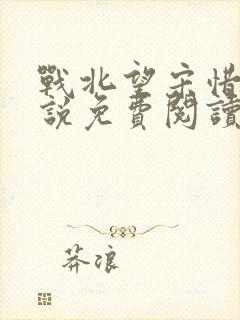 戰北望宋惜
說免費閱讀
莽浪